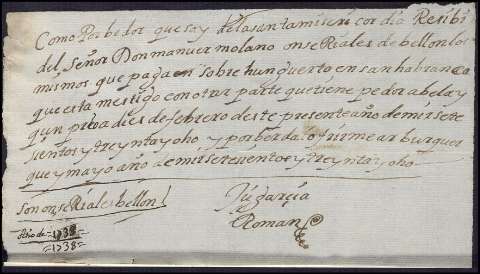 Como Porbedor que soy de la santa miseri cordia Resibi
del señor Don manuer molano onse Reales de bellon los
mismos que paga en sobre hun guerto en san habran
que esta mestigo con otra parte que tiene pedor abela y
qun pria dies de febrero deste presente año de mir sete
sientos y treynta y oho y por berda firme ar burquer
que y mayo año de mir setesientos y treynta y oho
son onse Reales bellon
Ju garcia
Roman
Año de 1738
=1738=